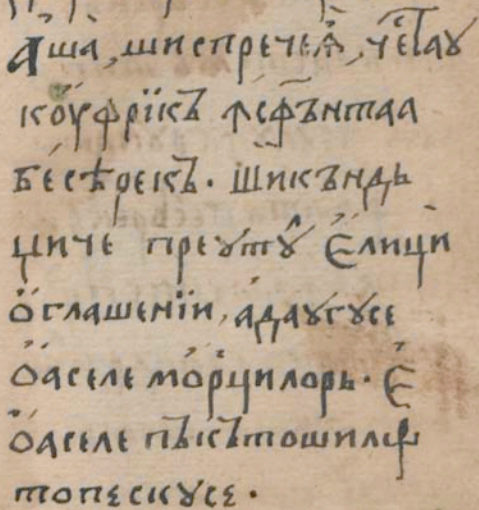 Аша, шиспречеѧ, чеⷭ҇таꙋ
коуфрїкъ ꙟсфънтаа
бесѣрекъ. Шикъндь
циче преꙋтꙋⷧ Єлици
ѻглашенїи, адаꙋгꙋсе
ѻаселе морцилорь. Є
ѻаселе пъкътошилѡр
топескꙋсе.